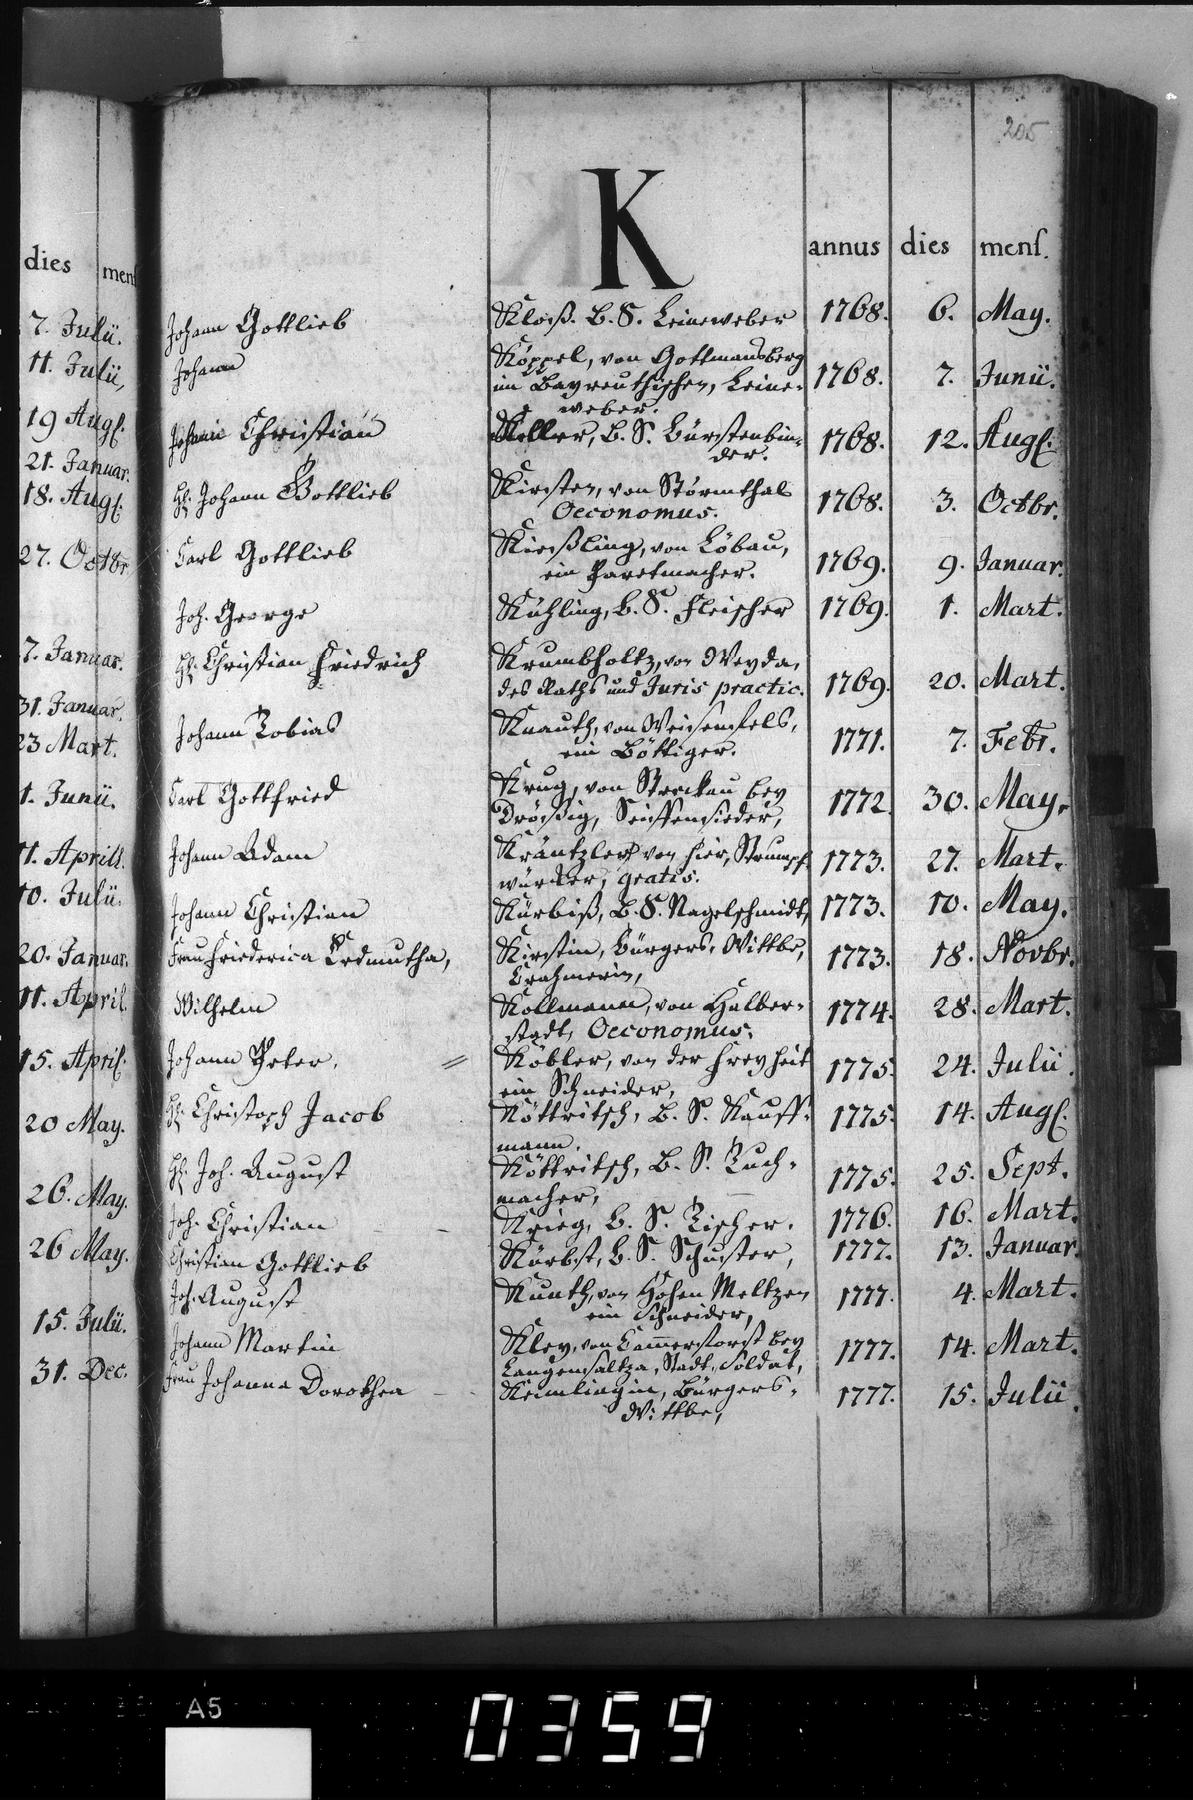 205
K
dies mens
annus dies mens.
7. Julii.
11. Julii,
19 Augs.
21. Januar.
18. Augs.
27. Octbr
7. Januar.
31. Januar.
23 Mart.
1. Junii.
11. Aprils.
10. Julii.
20. Januar.
11. April.
15. April.
20 May.
26. May.
26 May.
15. Julii.
31. Dec.
Johann Gottlieb Kloß. B. S. Leineweber 1768. 6. May.
Johann Köppel, von Gottmansberg
im Bayreuthischen, Leine- 1768. 7. Junii.
weber.
Johann Christian Keller, B. S. Bürstenbin- 1768. 12. Augs.
der.
H. Johann Gottlieb Kirsten, von Störmthal 1768. 3. Octbr.
Oeconomus.
Carl Gottlieb Kießling, von Löbau, 1769. 9. Januar.
ein Paretmacher.
Joh. George Kühling, B. S. Fleischer 1769. 1. Mart.
H. Christian Friedrich Krumbholtz, von Weyda,
des Raths und Juris practic. 1769. 20. Mart.
Johann Tobias Knauth, von Weisenfels, 1771. 7. Febr.
ein Böttiger.
Carl Gottfried Krug, von Streckau bey 1772. 30. May.
Dröißig, Seiffensieder,
Johann Adam Kräntzler von hier, Strumpf- 1773. 27. Mart.
würcker, gratis.
Johann Christian Kürbiß, B. S. Nagelschmidt, 1773. 10. May.
Frau Friederica Erdmutha, Kirstin, Bürgers, Wittbe, 1773. 18. Novbr.
Crahmerin,
Wilhelm Kollmann, von Halber- 1774. 28. Mart.
stadt, Oeconomus.
Johann Peter, = Köbler, von der Freyheit 1775. 24. Julii.
ein Schneider,
H. Christoph Jacob Köttritsch, B. S. Kauff- 1775. 14. Augs.
mann.
H. Joh. August Köttritsch, B. S. Tuch- 1775. 25. Sept.
macher,
Joh. Christian Krieg, B. S. Tischer. 1776. 16. Mart.
Christian Gottlieb Kürbst, B. S. Schuster, 1777. 13. Januar.
Joh. August Kunth, von Hohen Meltzen 1777. 4. Mart.
ein Schneider,
Johann Martin Kley, von Cammerstorst bey 1777. 14. Mart.
Langensaltza, Stadt, Soldat,
Frau Johanna Dorothea Keimlingin, Bürgers- 1777. 15. Julii.
Wittbe,
A5
0359